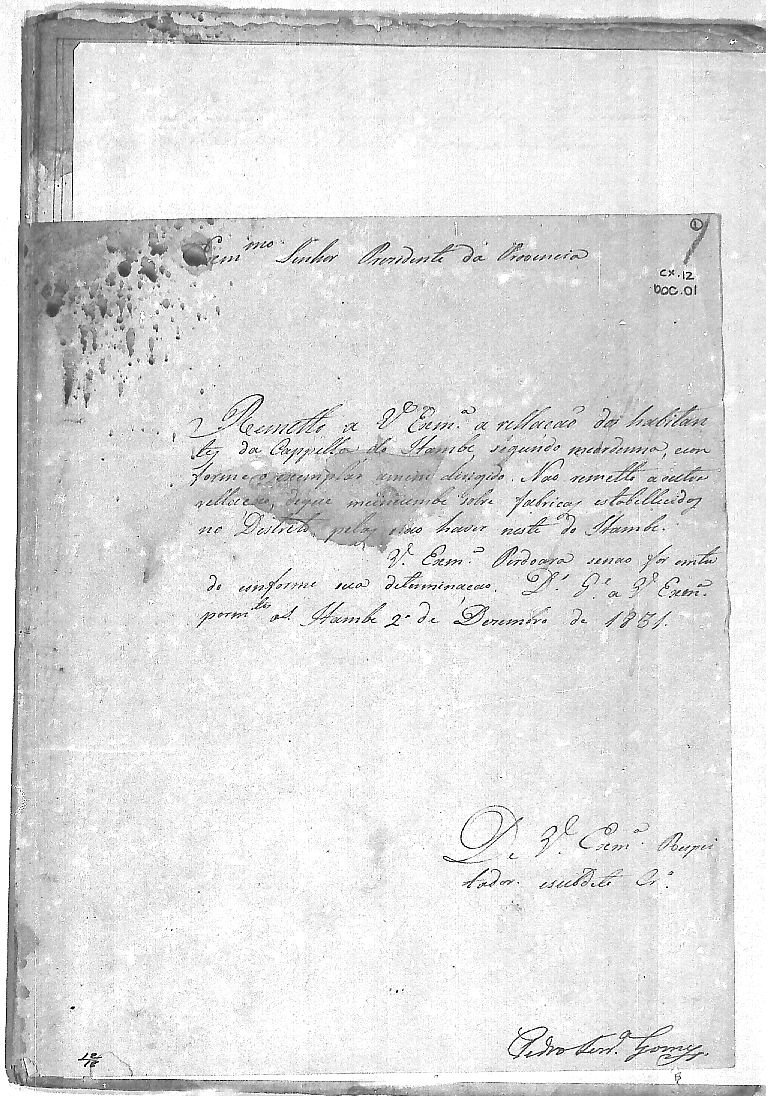 Exm.mo Senhor Prezidente da Provincia
1
CX.12
DOC.01
Remetto a V.ª Exm.ª a rellacaõ dos habitan
tes da Cappella do Itambe, segundo meordenna, con
forme o exemplar amim dirigido. Nao remetto aoutra
rellacaõ, deque meincumbe sobre fabricas estabellecidas
no Destreto pelas nao haver neste do Itambe.
V.ª Exm.ª Perdoara senao for
do conforme sua determinacao. D.s G.e a V.ª Exm.ª
porm.tos a.s Itambe 2 de Dezembro de 1831.
De V.ª Exm.ª Respei
tador. esubdito Cr.º
Pedro Ferr.ª Gomes